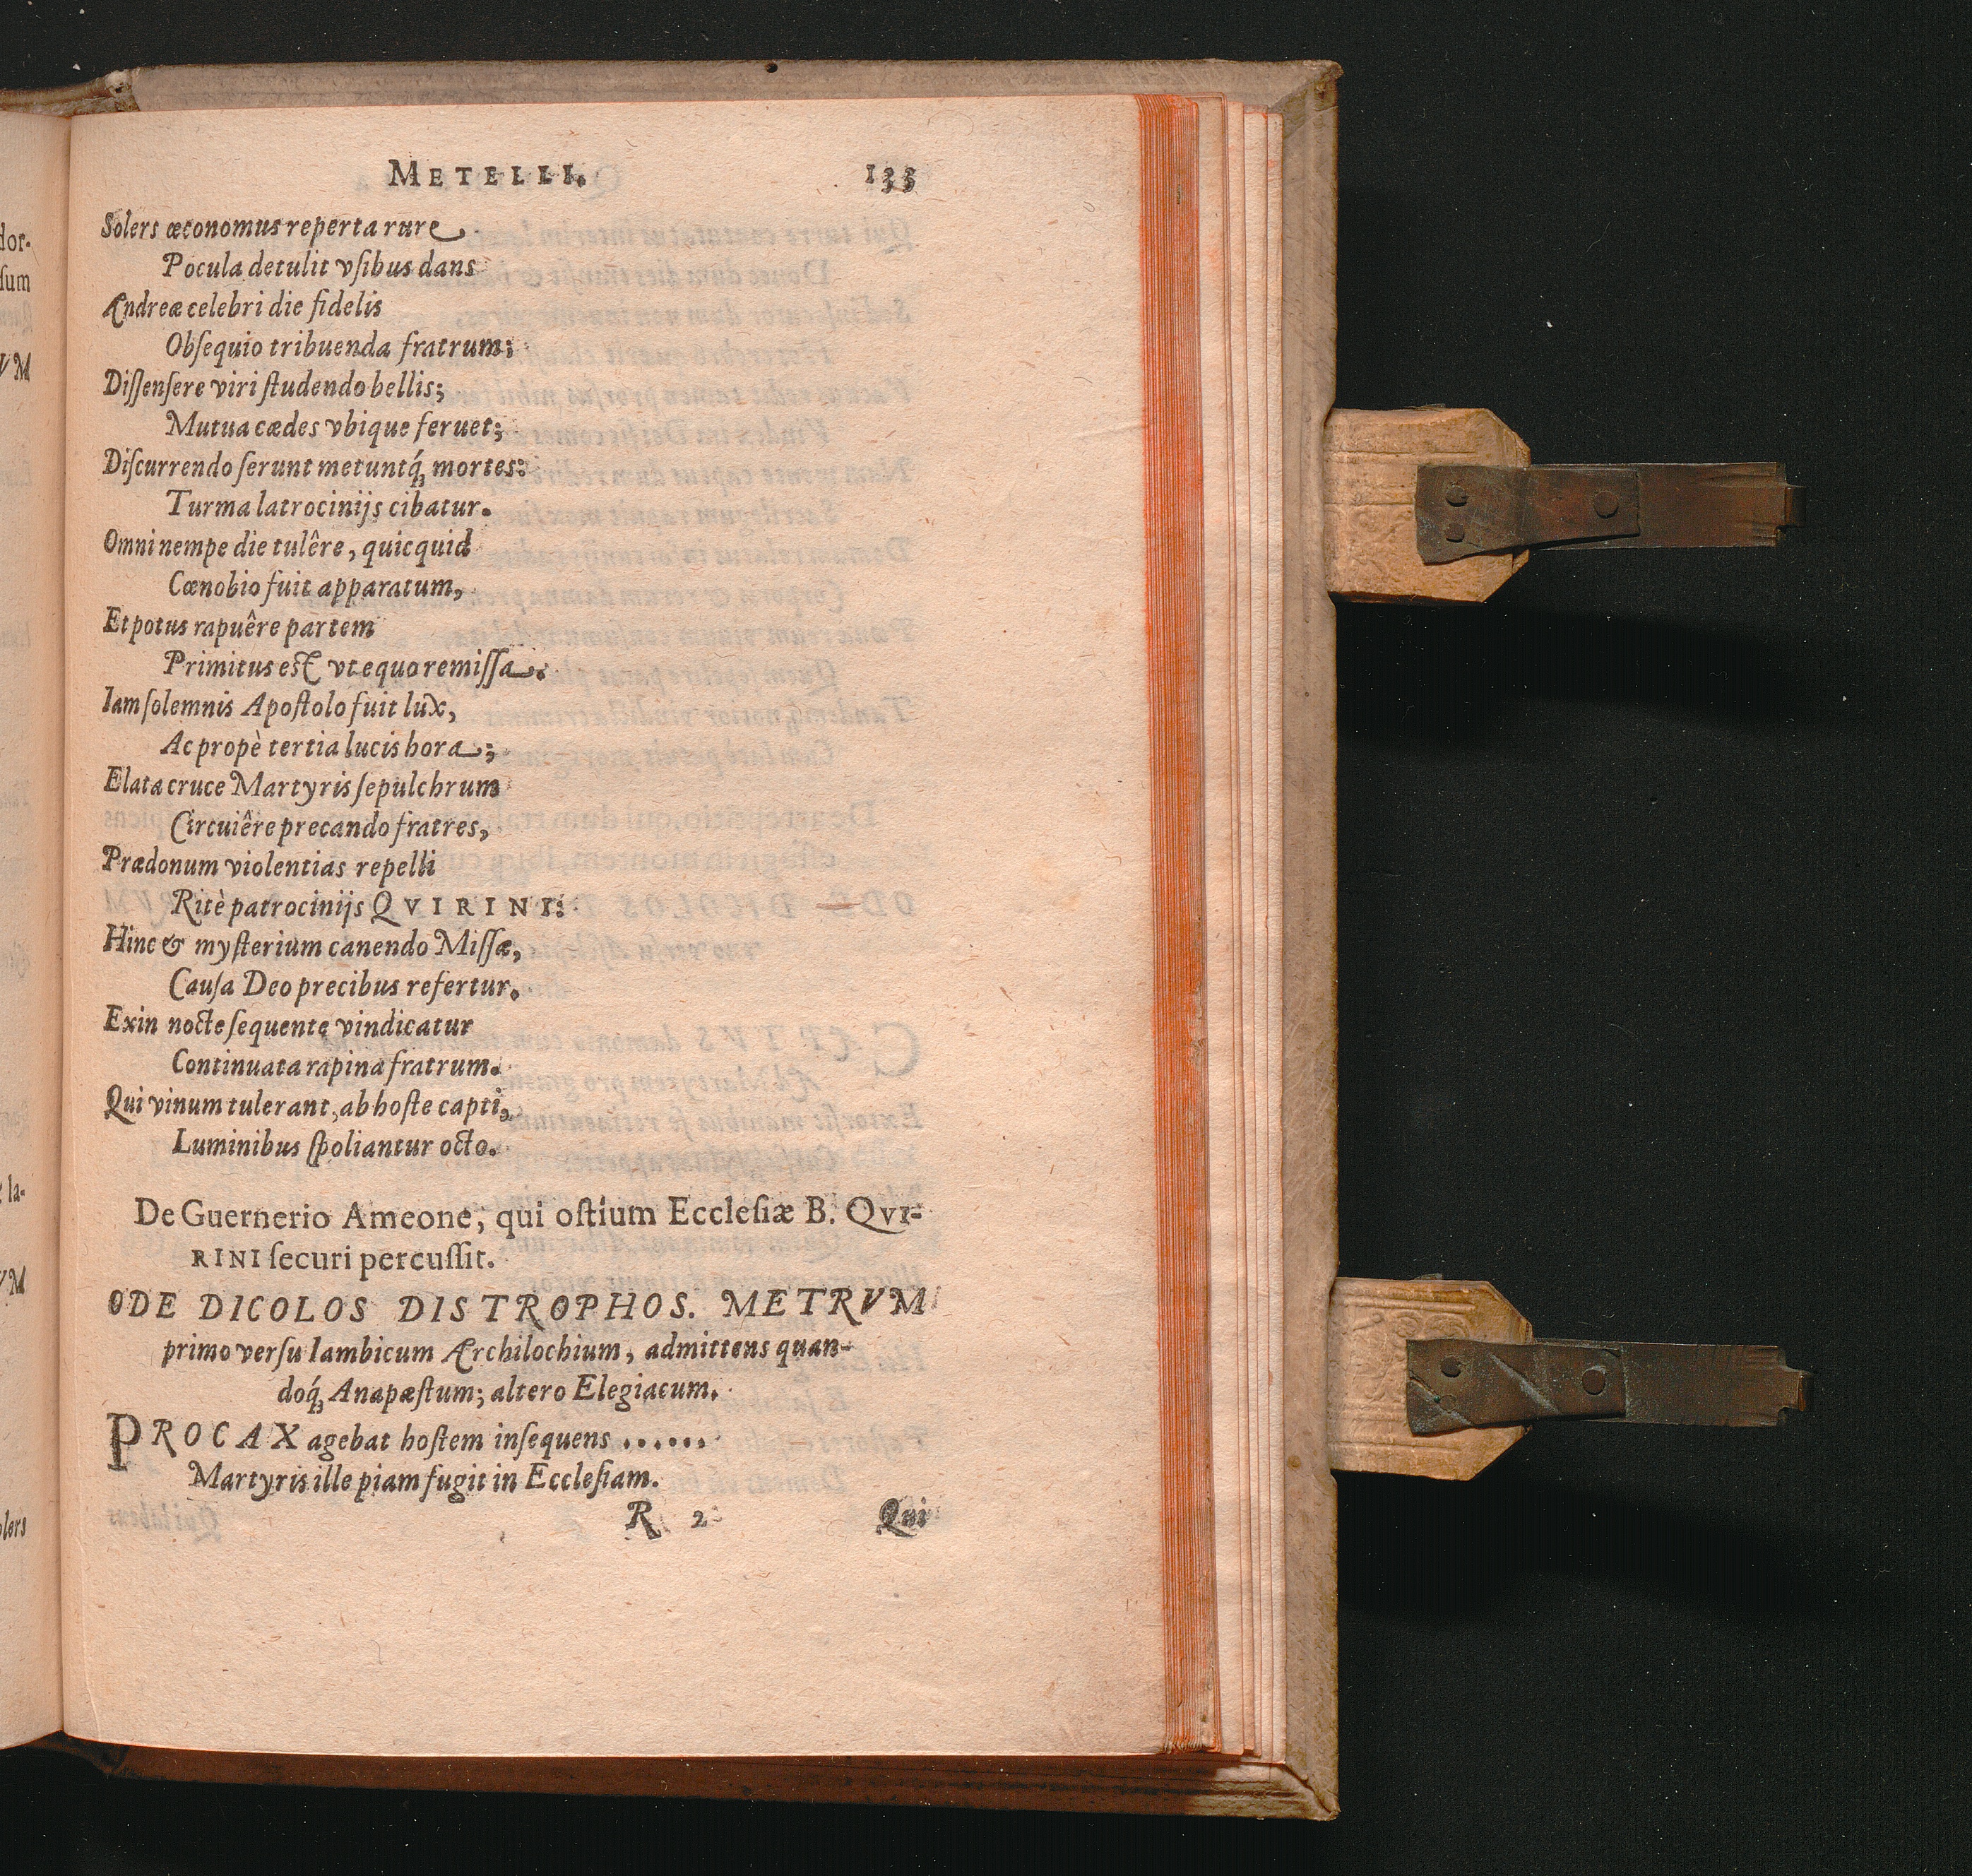 METELLI. 133
Solers œconomus reperta rure
Pocula detulit vſibus dans
Andreæ celebri die fidelis
Obſequio tribuenda fratrum;
Diſſenſere viri ſtudendo bellis;
Mutua cædes vbique feruet;
Diſcurrendo ferunt metuntq́ꝫ mortes:
Turma latrocinijs cibatur.
Omni nempe die tulêre, quicquid
Cœnobio fuit apparatum,
Et potus rapuêre partem
Primitus eſt vt equo remiſſa.
Iam ſolemnis Apoſtolo fuit lux,
Ac propè tertia lucis hora;
Elata cruce Martyris ſepulchrum
Circuiêre precando fratres,
Prædonum violentias repelli
Ritè patrocinijs QVIRINI:
Hinc & myſterium canendo Miſſæ,
Cauſa Deo precibus refertur.
Exin nocte ſequente vindicatur
Continuata rapina fratrum.
Qui vinum tulerant, ab hoſte capti,
Luminibus ſpoliantur octo.
De Guernerio Ameone, qui oſtium Eccleſiæ B. QVI-
RINI ſecuri percuſſit.
ODE DICOLOS DISTROPHOS. METRVM
primo verſu Iambicum Archilochium, admittens quan-
doq́ꝫ Anapæſtum; altero Elegiacum.
PROCAX agebat hoſtem inſequens ......
Martyris ille piam fugit in Eccleſiam.
R 2 Qui
dor-
ſum
VM
la-
VM
olers